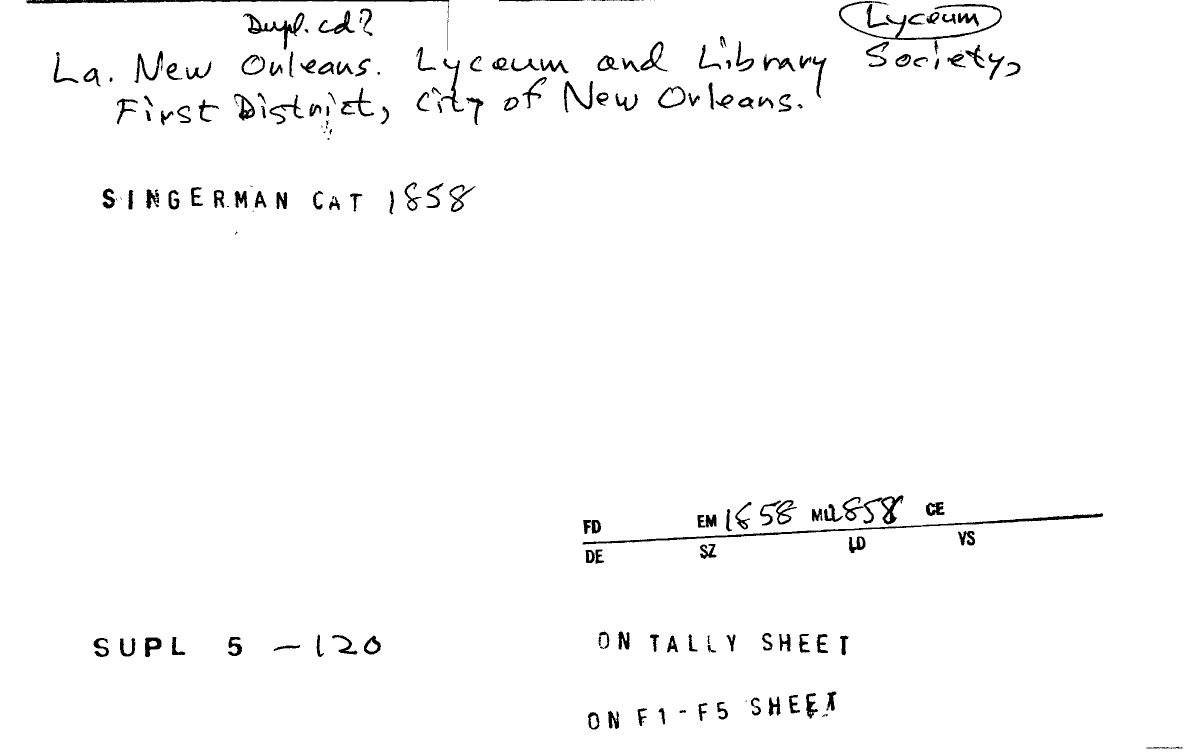 Dupl. cd?
Lyceum
La. New Orleans. Lyceum and Library Society,
First District, City of New Orleans.
SINGERMAN CAT 1858
FD EM 1858 ML 1858 CE
DE SZ LD VS
SUPL 5 - 120
ON TALLY SHEET
ON F1-F5 SHEET